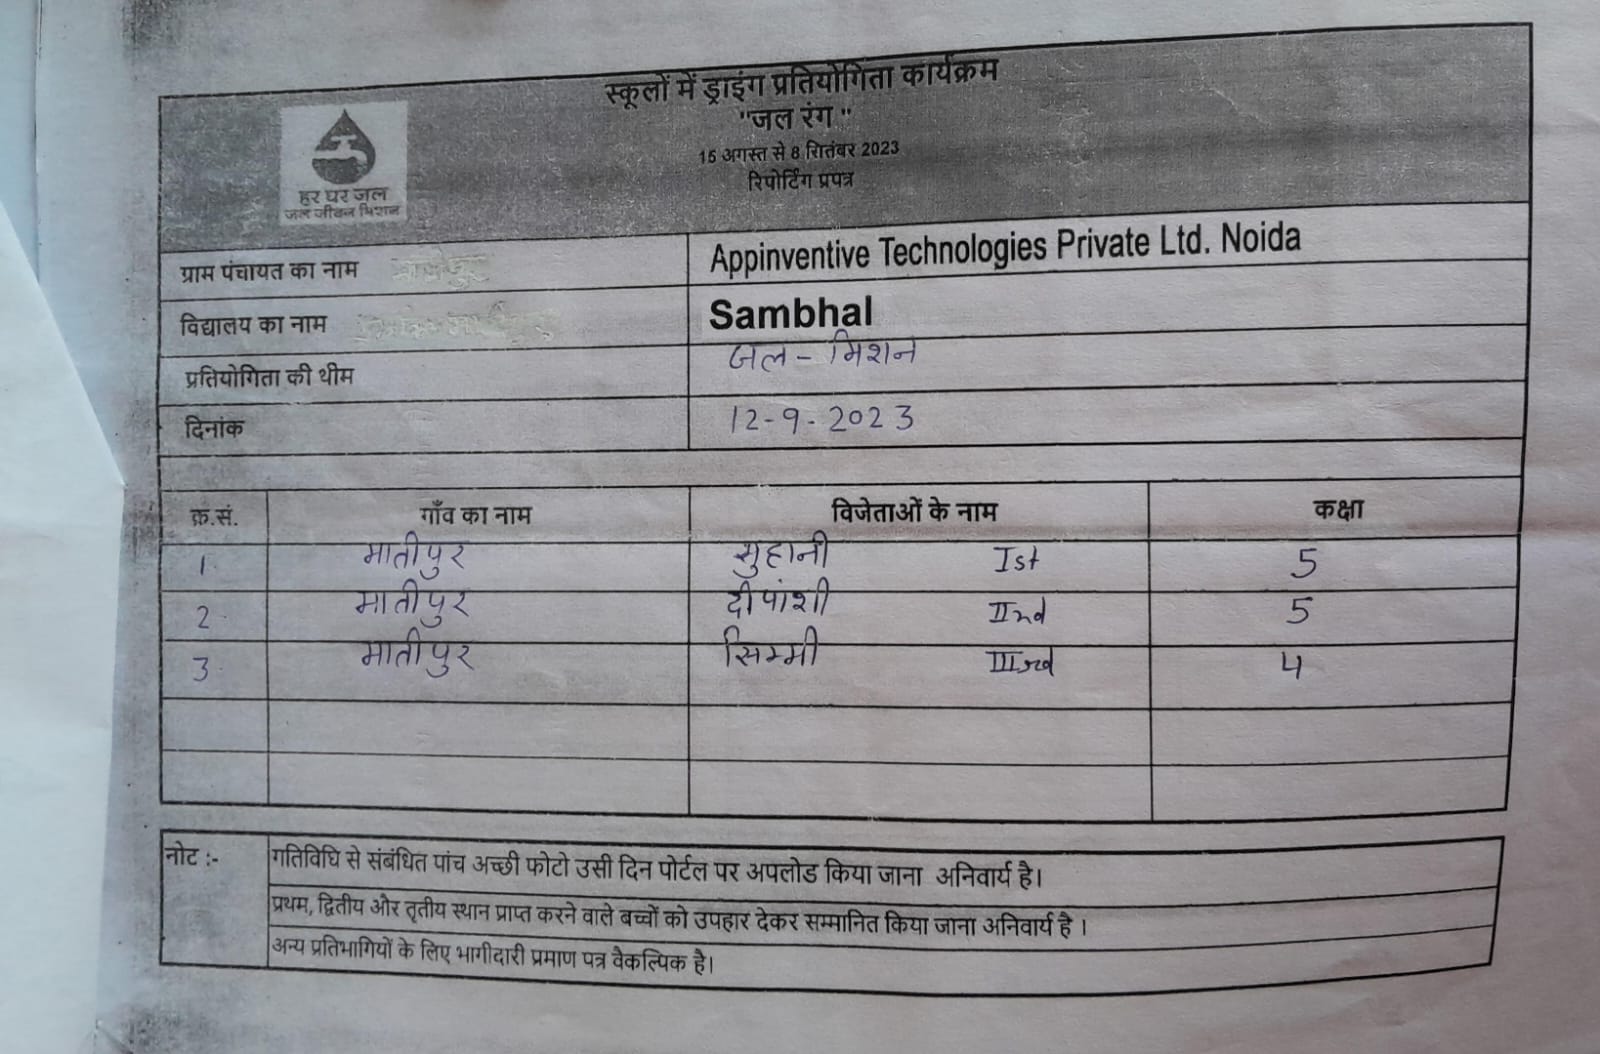 स्कूलों में ड्राइंग प्रतियोगिता कार्यक्रम
"जल रंग "
15 अगस्त से 8 सितंबर 2023
रिपोर्टिंग प्रपत्र
हर घर जल
जल जीवन मिशन
ग्राम पंचायत का नाम Appinventive Technologies Private Ltd. Noida
विद्यालय का नाम Sambhal
प्रतियोगिता की थीम जल - मिशन
दिनांक 12-9-2023
क्र.सं. गाँव का नाम विजेताओं के नाम कक्षा
1. मातीपुर सुहानी Ist 5
2. मातीपुर दीपांशी IInd 5
3. मातीपुर सिम्मी IIIrd 4
नोट :- गतिविघि से संबंधित पांच अच्छी फोटो उसी दिन पोर्टल पर अपलोड किया जाना अनिवार्य है।
प्रथम, द्वितीय और तृतीय स्थान प्राप्त करने वाले बच्चों को उपहार देकर सम्मानित किया जाना अनिवार्य है ।
अन्य प्रतिभागियों के लिए भागीदारी प्रमाण पत्र वैकल्पिक है।